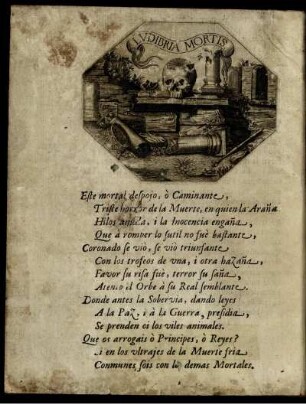 LVDIBRIA MORTIS
Este mortal despojo, ò Caminante,
Triste horror de la Muerte, en quien la Araña
Hilos anuda, i la Inocencia engaña,
Que à romper lo sutil no fuè bastante,
Coronado se viò, se viò triunfante
Con los trofeos de vna, i otra hazaña,
Favor su risa fuè, terror su saña,
Atento el Orbe à su Real semblante.
Donde antes la Sobervia, dando leyes
A la Paz, i à la Guerra, presidia,
Se prenden oi los viles animales.
Que os arrogais ò Principes, ò Reyes?
si en los vltrajes de la Muerte fria
Comunes sois con los demas Mortales.